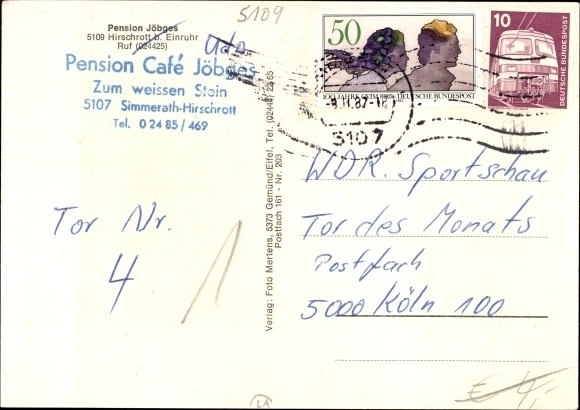 5109
Pension Jöbges
5109 Hirschrott b. Einruhr
Ruf (024425)
Udo
Pension Café Jöbges
Zum weissen Stein
5107 Simmerath-Hirschrott
Tel. 0 24 85 / 469
50
DEUTSCHE BUNDESPOST
10
DEUTSCHE BUNDESPOST
5107
Verlag: Foto Mertens, 5373 Gemünd/Eifel, Tel. (02444) 2265
Postfach 161 - Nr. 203
Tor Nr.
4
1
WDR. Sportschau
Tor des Monats
Postfach
5000 Köln 100